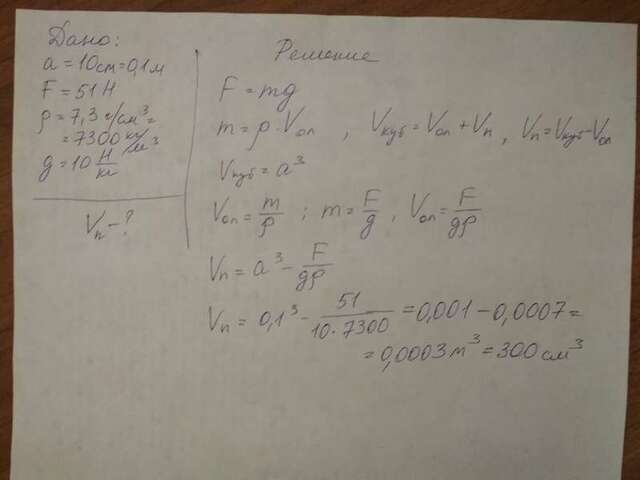 Дано:
a = 10см = 0,1м
F = 51 Н
ρ = 7,3 г/см³ =
= 7300 кг/м³
g = 10 Н/кг
Vп - ?
Решение
F = mg
m = ρ · Vол , Vкуб = Vол + Vп , Vп = Vкуб - Vол
Vкуб = a³
Vол = m/ρ ; m = F/g , Vол = F/gρ
Vп = a³ - F/gρ
Vп = 0,1³ - 51/10·7300 = 0,001 - 0,0007 =
= 0,0003 м³ = 300 см³